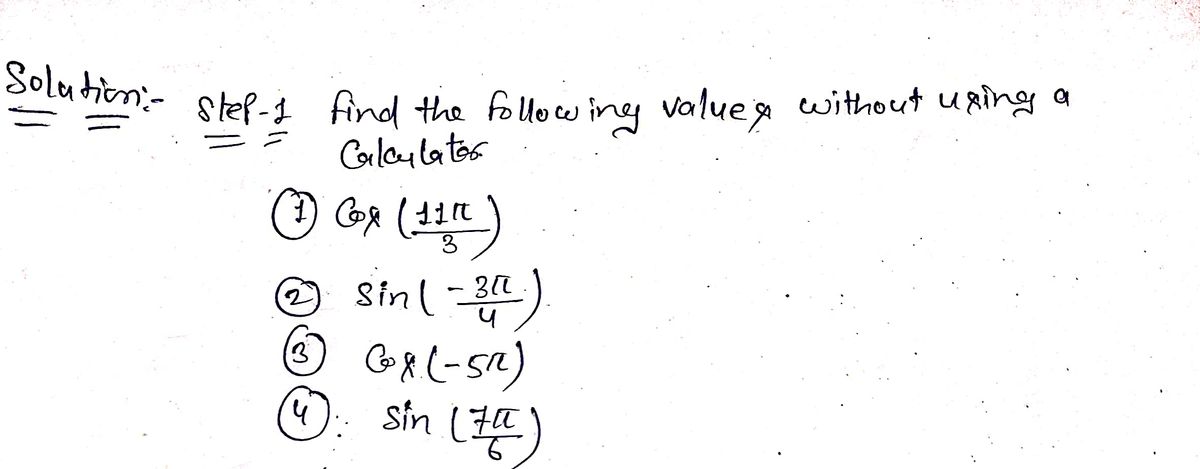 Solution:- Step-1 find the following values without using a
Calculator
① Cos (11π/3)
② sin (-3π/4)
③ Cos (-5π)
④: sin (7π/6)